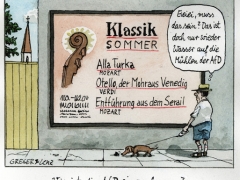 Klassik
SOMMER
Alla Turka
MOZART
Otello, der Mohr aus Venedig
VERDI
Entführung aus dem Serail
MOZART
Eieiei, muss
das sein? Das ist
doch nur wieder
Wasser auf die
Mühlen der AfD
GRESER & LENZ